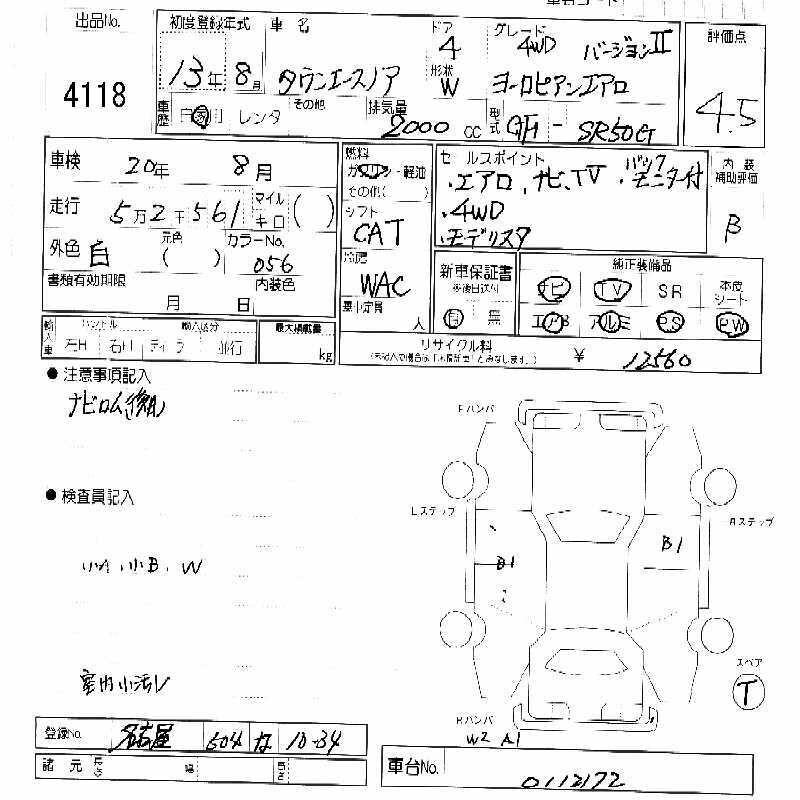 出品No. 4118
初度登録年式 13年 8月
車名 タウンエースノア
ドア 4
形状 W
グレード 4WD バージョンII
ヨーロピアンエアロ
評価点 4.5
車歴 自家用 レンタ その他
排気量 2000 cc
型式 GH - SR50G
車検 20年 8月
走行 5万2千561 マイル キロ ( )
外色 白 元色 ( ) カラーNo. 056
内装色
書類有効期限 月 日
燃料 ガソリン・軽油
その他( )
シフト CAT
冷房 WAC
乗車定員 人
セールスポイント
・エアロ、ナビ、TV ・バックモニター付
・4WD
・モデリスタ
内装補助評価 B
新車保証書 有 無
純正装備品
ナビ TV SR 本皮シート
エアB アルミ PS PW
輸入車 ハンドル 左H 右H 輸入区分 ディーラ 並行
最大積載量 kg
リサイクル料 ¥ 12560
● 注意事項記入
ナビロム(後日)
● 検査員記入
小A、小B、W
室内小汚レ
Fバンパ
Lステップ
Rステップ
B1
B1
スペア
T
Rバンパ
W2 A1
登録No. 名古屋 504 な 10-34
諸元 長さ 幅 高さ
車台No. 0112172